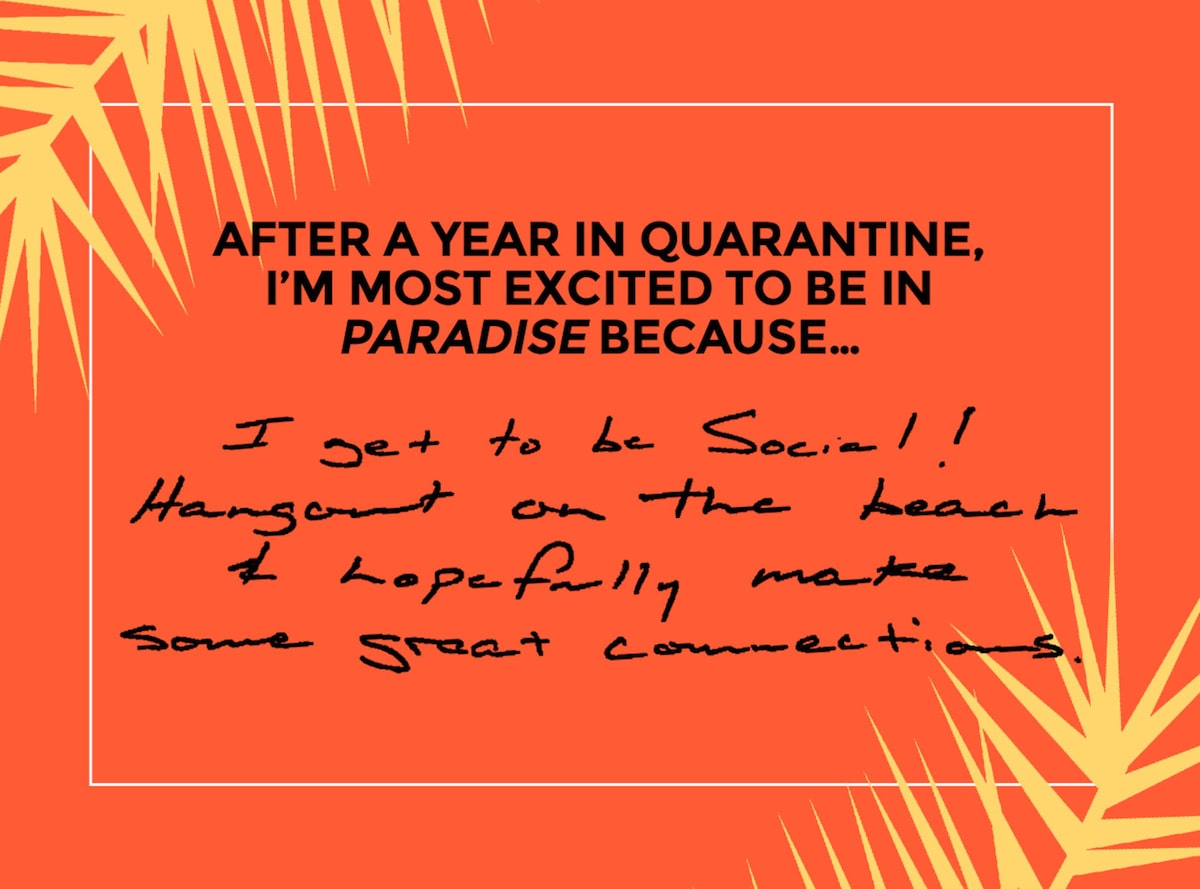 AFTER A YEAR IN QUARANTINE,
I'M MOST EXCITED TO BE IN
PARADISE BECAUSE...
I get to be Social!!
Hangout on the beach
& hopefully make
some great connections.